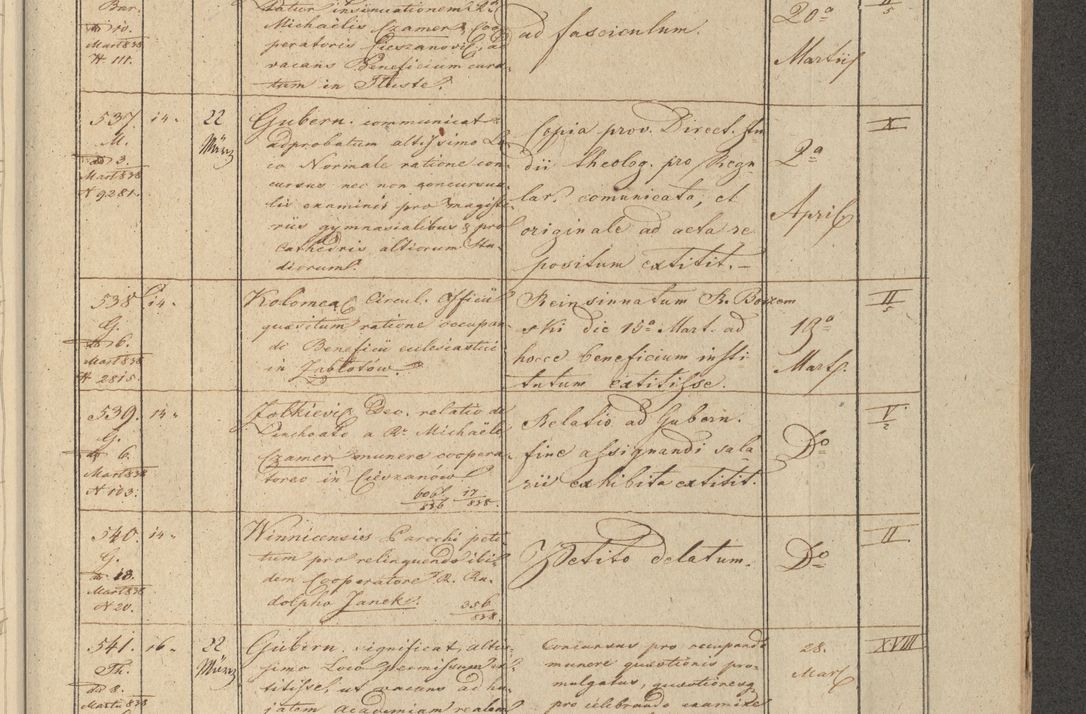 Bar.
Mart 838
N 111.
Michaëlis Czamer Coo-
peratoris Cieszanoviae, ad
vacans Beneficium cura-
tum in Tłuste.
ad fasciculum.
20a
Martii
II/5
537.
M.
3.
Mart 838
N 9281.
14.
22
März
Gubern. communicat
adprobatum altissimo Lo-
co Normale ratione con-
cursus nec non concursua-
lis examinis pro magiste-
riis gymnasialibus & pro
cathedris altiorum Stu-
diorum.
Copia prov. Direct. stu
dii theolog. pro Regu-
lar. comunicato, et
originale ad acta re
positum extitit.
2a
April
X
538
G.
6.
Mart 838
N 2815.
14.
Kolomeae Circul. Officii
quaesitum ratione occupan-
di Beneficii ecclesiastici
in Zabłotow.
Reinsinnatum R. Borzem
ski die 15a Mart. ad
hocce beneficium insti
tutum extitisse.
19a
Mart.
II/5
539.
G.
6.
Mart 838
N 103.
14.
Zolkievien Dec. relatio de
inchoato a R. Michaële
Czamer munere coopera-
torio in Cieszanów
606/836 17/838.
Relatio ad Gubern.
fine assignandi sala-
rii exhibita extitit.
Do
V/2
540.
G.
13.
Mart 838
N 20.
14.
Winnicensis Parochi peti-
tum pro relinquendo ibi-
dem Cooperatore R. Ru-
dolpho Janek.
356/838
Petito delatum.
Do
II
541.
Th.
8.
Martii 838
16.
22
März
Gubern. significat, altis-
simo Loco permissum ex-
titisse, ut vacans ad hu-
jatem Academiam realem
Concursus pro occupando
munere quaestionis pro-
mulgatus, quaestionesq
pro celebrando examine
28.
Mart
XVIII